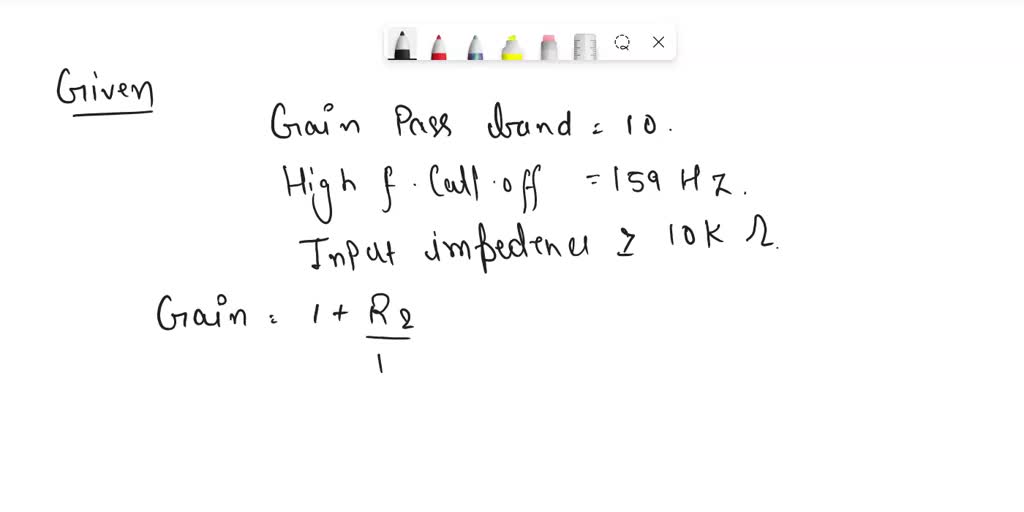 Given
Gain Pass band = 10.
High f. Call.off = 159 Hz.
Input impedence ≥ 10K Ω.
Gain = 1 + R2
1